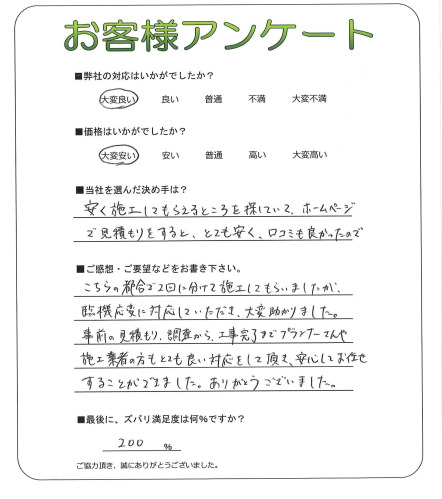 お客様アンケート
■弊社の対応はいかがでしたか？
大変良い 良い 普通 不満 大変不満
■価格はいかがでしたか？
大変安い 安い 普通 高い 大変高い
■当社を選んだ決め手は？
安く施工してもらえるところを探していて、ホームページ
で見積もりをすると、とても安く、口コミも良かったので
■ご感想・ご要望などをお書き下さい。
こちらの都合で2回に分けて施工してもらいましたが、
臨機応変に対応していただき、大変助かりました。
事前の見積もり、調査から、工事完了までプランナーさんや
施工業者の方もとても良い対応をして頂き、安心してお任せ
することができました。ありがとうございました。
■最後に、ズバリ満足度は何％ですか？
200 ％
ご協力頂き、誠にありがとうございました。